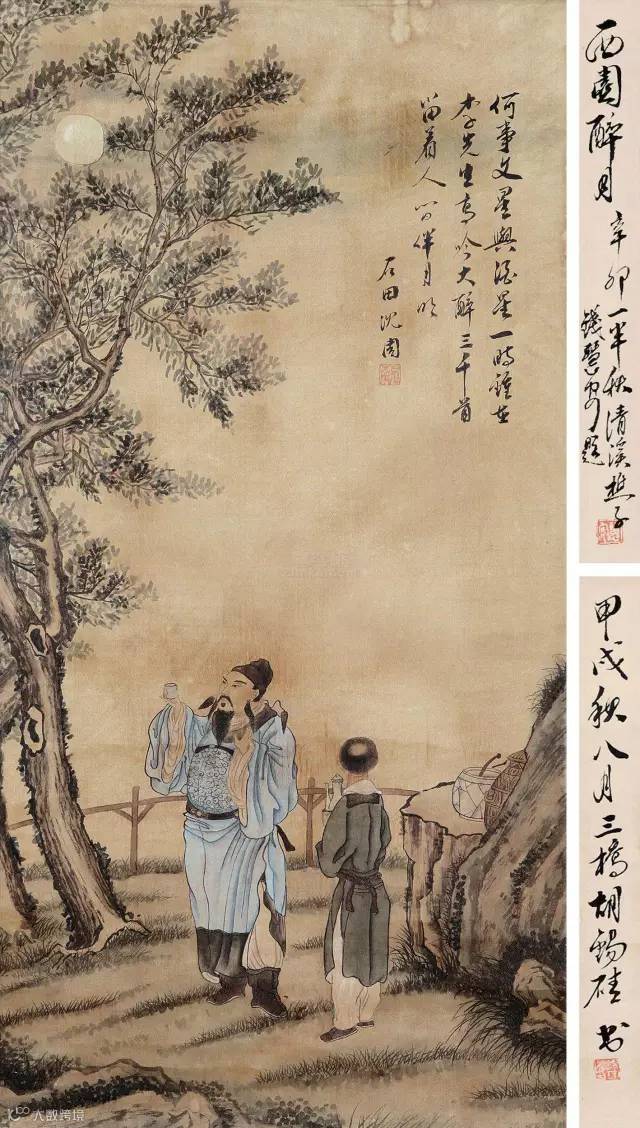 何事文星與酒星一時鍾在
李先生高吟大醉三千首
留着人间伴月明
石田沈周
西園醉月
辛卯一半秋清溪樵子
錢慧安題
甲戌秋八月三橋胡錫珪书
大数跨境